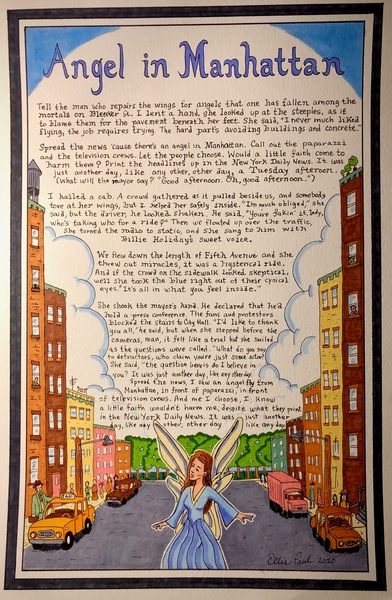 Angel in Manhattan
Tell the man who repairs the wings for angels that one has fallen among the
mortals on Bleeker St. I lent a hand, she looked up at the steeples, as if
to blame them for the pavement beneath her feet. She said, "I never much liked
flying, the job requires trying. The hard part's avoiding buildings and concrete."
Spread the news 'cause there's an angel in Manhattan. Call out the paparazzi
and the television crews. Let the people choose. Would a little faith come to
harm them? Print the headlines up in the New York Daily News. It was
just another day, like any other, other day, a Tuesday afternoon.
(What will the mayor say? "Good afternoon. Oh, good afternoon.")
I hailed a cab. A crowd gathered as it pulled beside us, and somebody
tore at her wings, but I helped her safely inside. "I'm much obliged," she
said, but the driver, he looked shaken. He said, "You're fakin' it, lady,
who's taking who for a ride?" Then we floated up over the traffic,
she turned the radio to static, and she sang to him with
Billie Holiday's sweet voice.
We flew down the length of Fifth Avenue and she
threw out miracles, it was a hysterical ride.
And if the crowd on the sidewalk looked skeptical,
well she took the blue right out of their cynical
eyes. "It's all in what you feel inside."
She shook the mayor's hand. He declared that he'd
hold a press conference. The fans and protestors
blocked the stairs to City Hall. "I'd like to thank
you all," he said, but when she stepped before the
cameras, man, it felt like a trial but she smiled
as the questions were called. "What do you say
to detractors, who claim you're just some actor?"
She said, "The question being is do I believe in
you? It was just another day, like any other day.
Spread the news, I saw an angel fly from
Manhattan, in front of paparazzi, in front
of television crews. And me I choose, I know
a little faith wouldn't harm me, despite what they print
in the New York Daily News. It was just another
day, like any other, other day like any day.
TAXI
Ellis Paul 2020